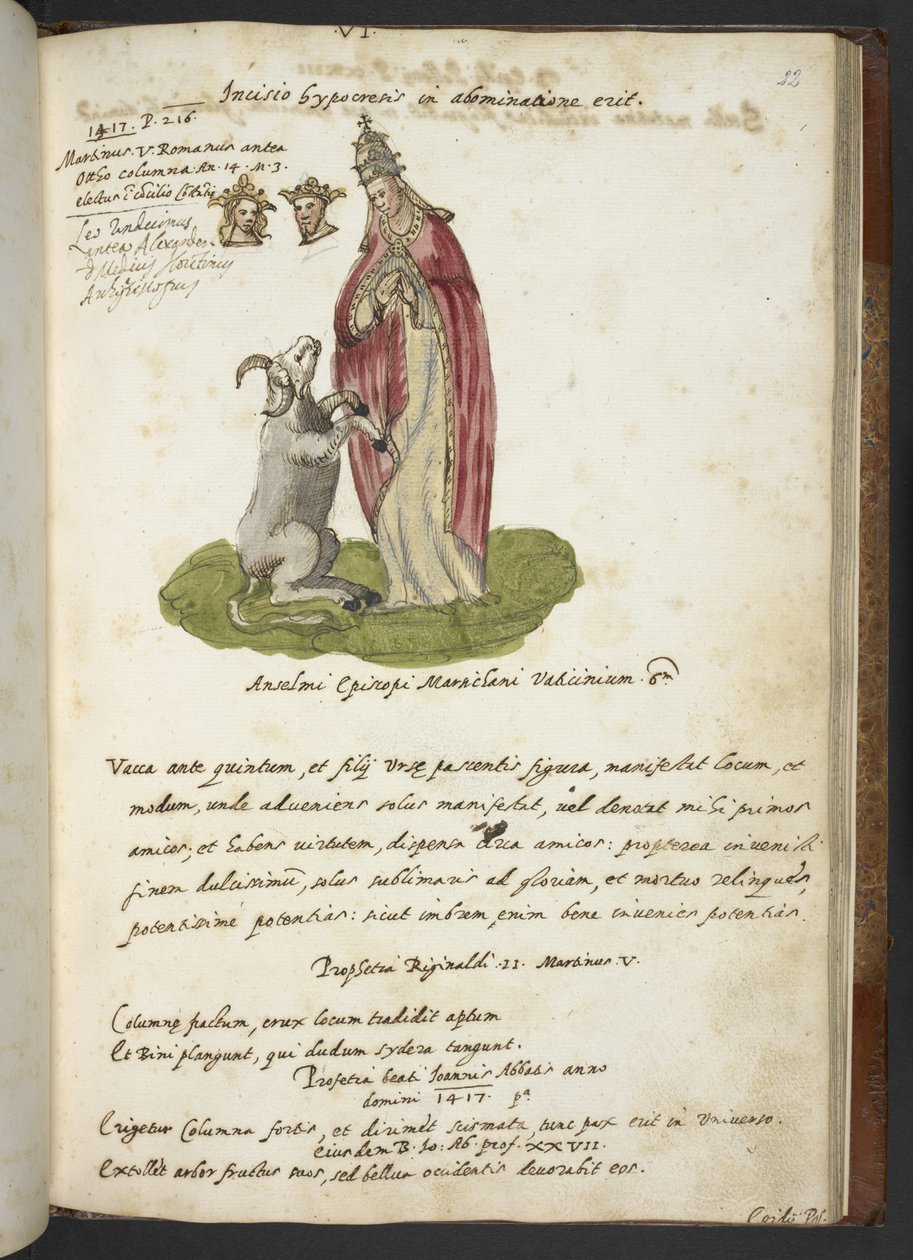 .VI.
22
Incisio hypocresis in abominatione erit.
1417. P. 216.
Martinus. V. Romanus antea
Otto columna. An. 14. M. 3.
electus
Leo Undecimus
antea Alexander
Anselmi Episcopi Marsichani Vaticinium. 6m
Vacca ante quintum, et filij Ursę pascentis figura, manifestat locum, et
modum, unde adveniens solus manifestat, vel denotat mihi primos
amicos; et habens virtutem, dispensa circa amicos: propterea invenisti
finem dulcissimũ, solus sublimaris ad gloriam, et mortuo relinques,
potentissime potentias: sicut imbrem ęnim bene invenies potentias.
Prophetia Riginaldi .II. Martinus V.
Columnę pactum, crux locum tradidit aptum
Et Bini plangunt, qui dudum sydera tangunt.
Profetia beati Ioannis Abbatis anno
domini 1417. pa
Erigetur Columna fortis, et dirimet scismata, tunc pax erit in Universo.
eiusdem B. Io: Ab. prof. XXVII.
Extollet arbor fructus suos, sed bellua ocidentis devorabit eos.